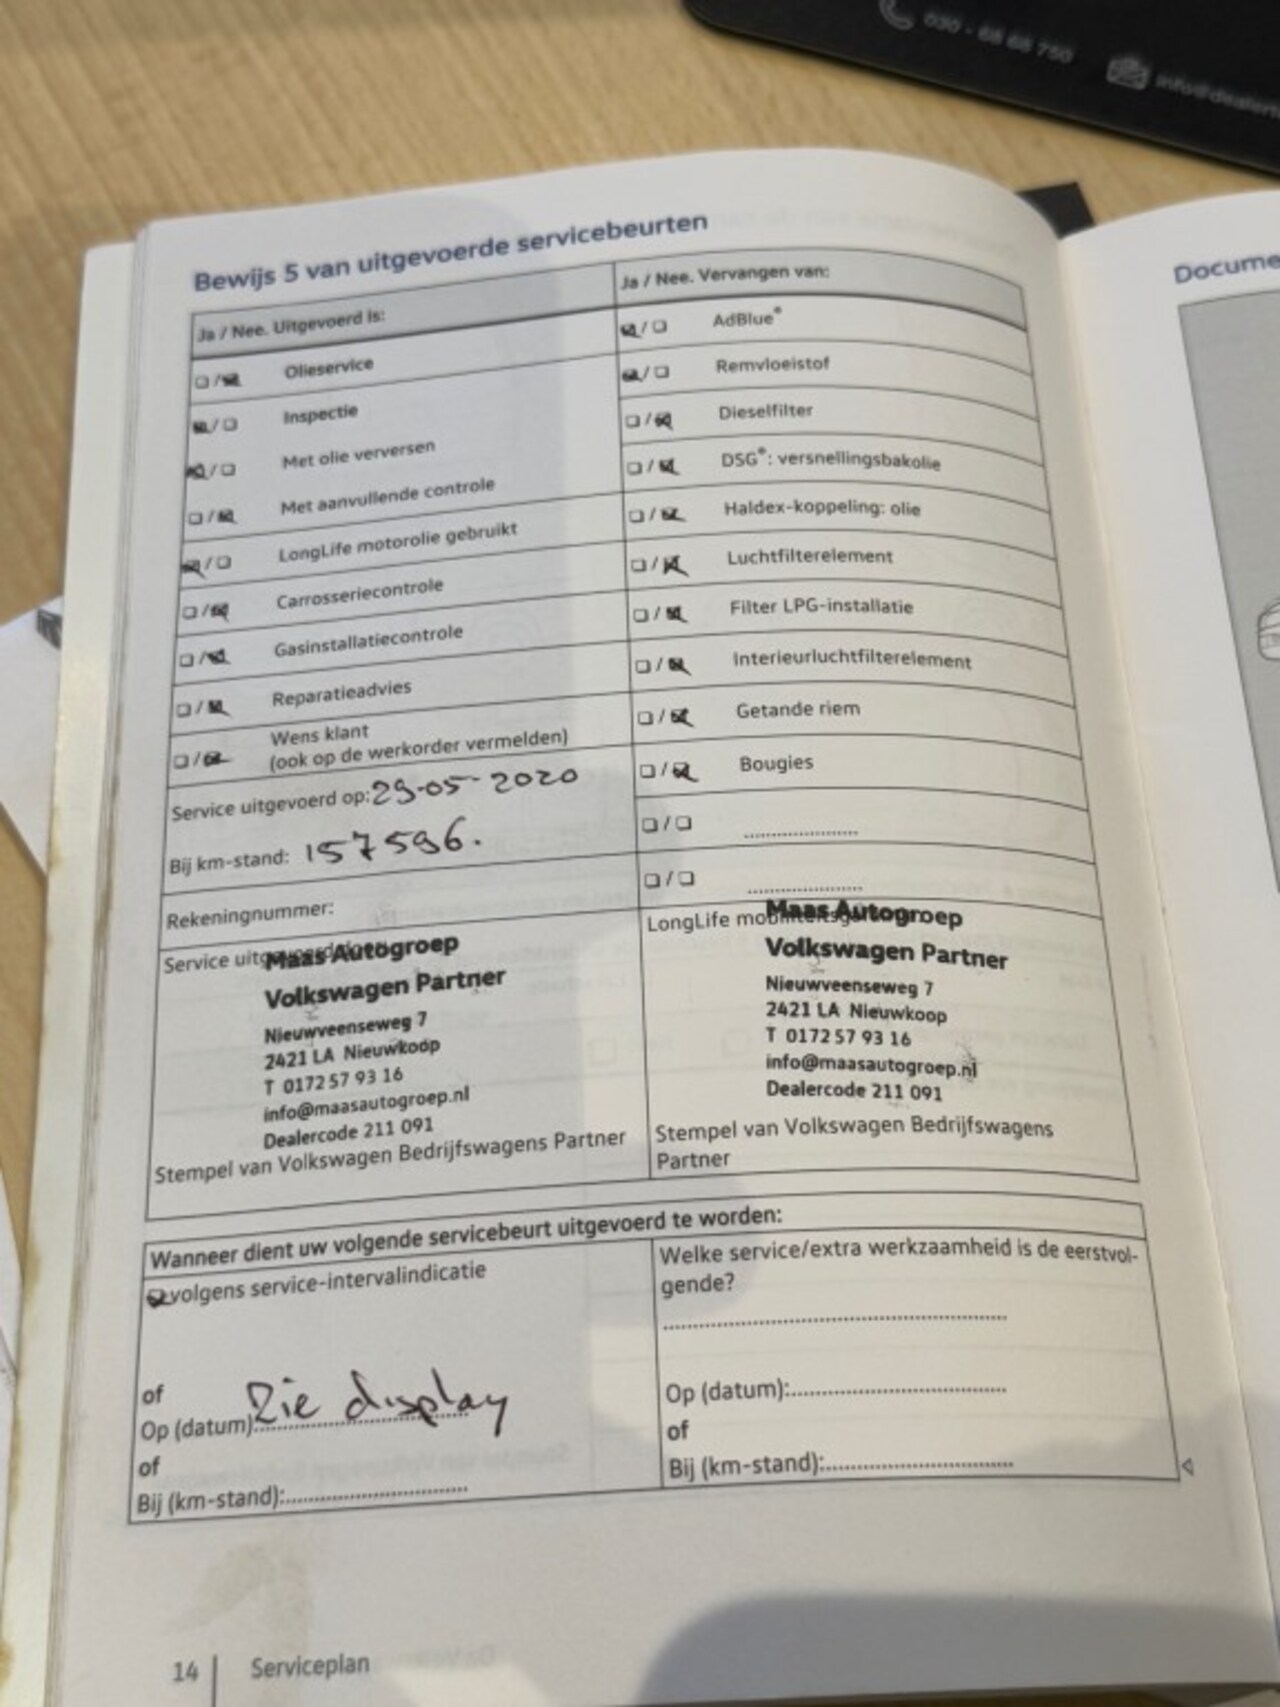 030 - 68 68 750
Bewijs 5 van uitgevoerde servicebeurten
Docume
Ja / Nee. Uitgevoerd is:
Olieservice
Inspectie
Met olie verversen
Met aanvullende controle
LongLife motorolie gebruikt
Carrosseriecontrole
Gasinstallatiecontrole
Reparatieadvies
Wens klant
(ook op de werkorder vermelden)
Service uitgevoerd op: 29-05-2020
Bij km-stand: 157596.
Rekeningnummer:
Service uitgevoerd door:
Maas Autogroep
Volkswagen Partner
Nieuwveenseweg 7
2421 LA Nieuwkoop
T 0172 57 93 16
info@maasautogroep.nl
Dealercode 211 091
Stempel van Volkswagen Bedrijfswagens Partner
Ja / Nee. Vervangen van:
AdBlue®
Remvloeistof
Dieselfilter
DSG®: versnellingsbakolie
Haldex-koppeling: olie
Luchtfilterelement
Filter LPG-installatie
Interieurluchtfilterelement
Getande riem
Bougies
LongLife
Maas Autogroep
Volkswagen Partner
Nieuwveenseweg 7
2421 LA Nieuwkoop
T 0172 57 93 16
info@maasautogroep.nl
Dealercode 211 091
Stempel van Volkswagen Bedrijfswagens
Partner
Wanneer dient uw volgende servicebeurt uitgevoerd te worden:
volgens service-intervalindicatie
of
Op (datum): Zie display
of
Bij (km-stand):
Welke service/extra werkzaamheid is de eerstvol-
gende?
Op (datum):
of
Bij (km-stand):
14 Serviceplan